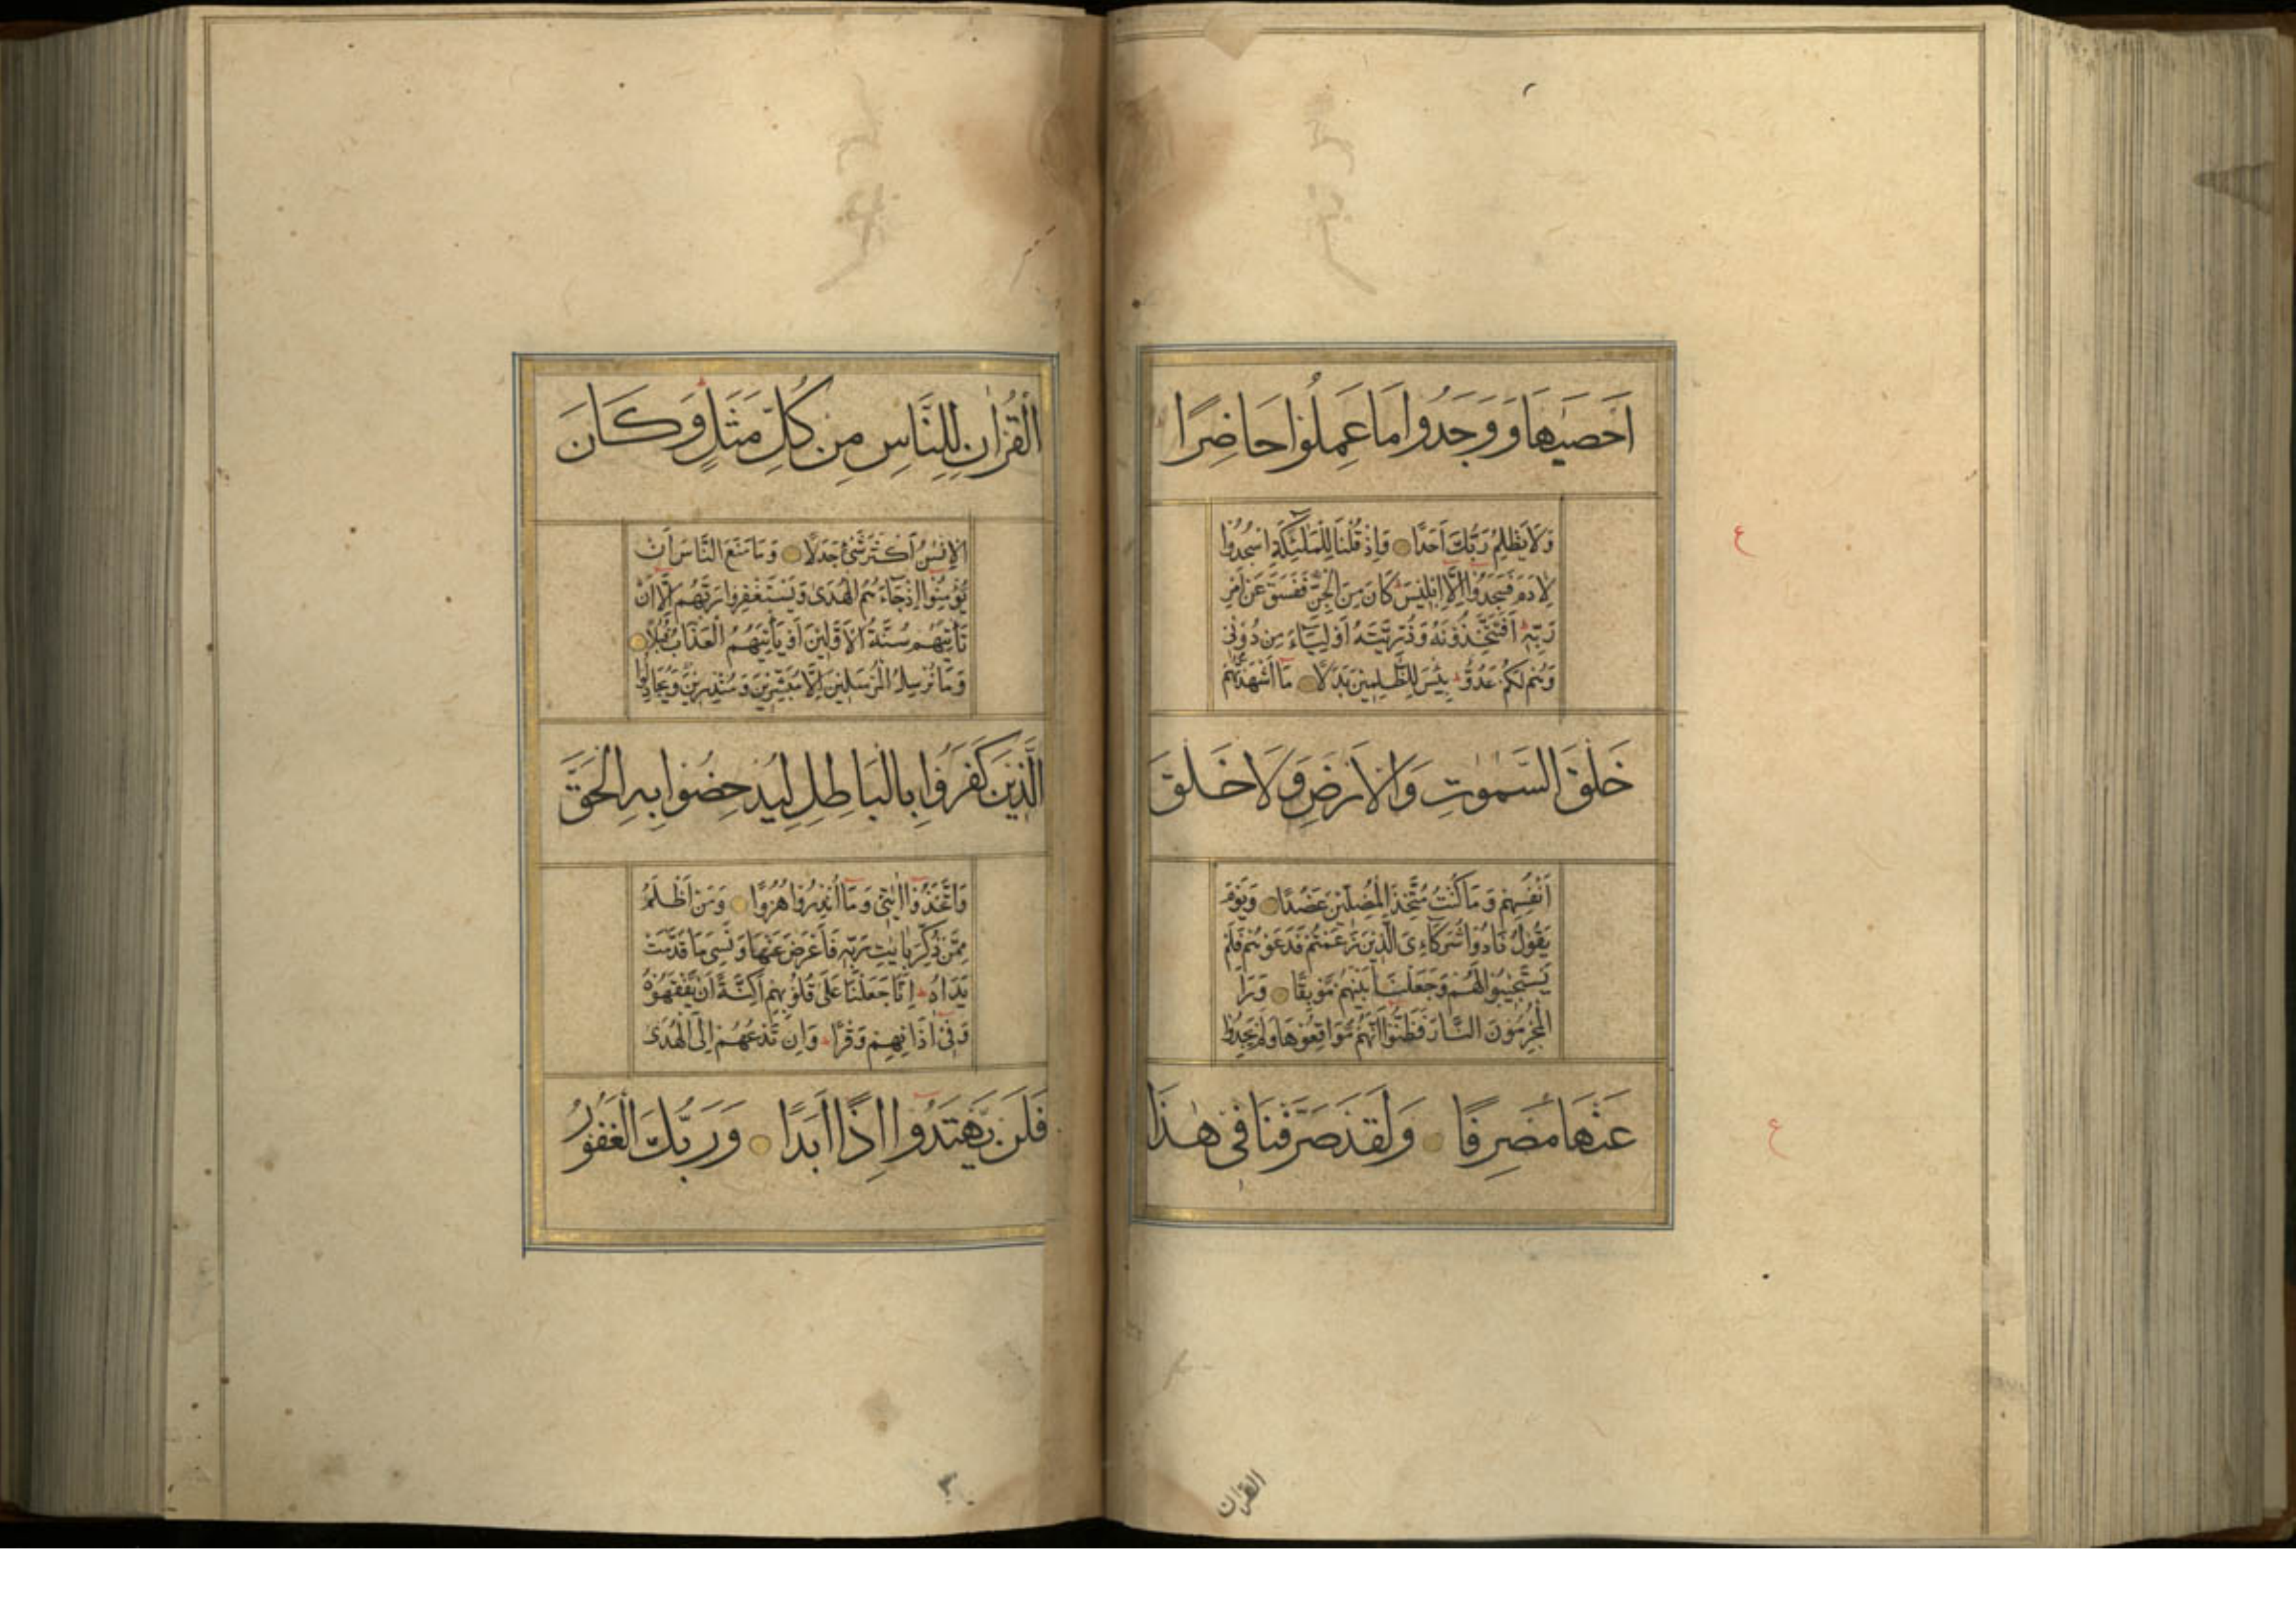 اَحْصٰىهَا وَوَجَدُوا مَا عَمِلُوا حَاضِرًا
وَلَا يَظْلِمُ رَبُّكَ اَحَدًا وَاِذْ قُلْنَا لِلْمَلٰئِكَةِ اسْجُدُوا
لِاٰدَمَ فَسَجَدُوا اِلَّا اِبْلِيسَ كَانَ مِنَ الْجِنِّ فَفَسَقَ عَنْ اَمْرِ
رَبِّهٖ اَفَتَتَّخِذُونَهُ وَذُرِّيَّتَهُ اَوْلِيَاءَ مِنْ دُونِى
وَهُمْ لَكُمْ عَدُوٌّ بِئْسَ لِلظّٰلِمِينَ بَدَلًا مَا اَشْهَدْتُهُمْ
خَلْقَ السَّمٰوٰتِ وَالْاَرْضِ وَلَا خَلْقَ
اَنْفُسِهِمْ وَمَا كُنْتُ مُتَّخِذَ الْمُضِلِّينَ عَضُدًا وَيَوْمَ
يَقُولُ نَادُوا شُرَكَاءِىَ الَّذِينَ زَعَمْتُمْ فَدَعَوْهُمْ فَلَمْ
يَسْتَجِيبُوا لَهُمْ وَجَعَلْنَا بَيْنَهُمْ مَوْبِقًا وَرَاَ
الْمُجْرِمُونَ النَّارَ فَظَنُّوا اَنَّهُمْ مُوَاقِعُوهَا وَلَمْ يَجِدُوا
عَنْهَا مَصْرِفًا وَلَقَدْ صَرَّفْنَا فِى هٰذَا
ع
ع
القران
الْقُرْاٰنِ لِلنَّاسِ مِنْ كُلِّ مَثَلٍ وَكَانَ
الْاِنْسٰنُ اَكْثَرَ شَىْءٍ جَدَلًا وَمَا مَنَعَ النَّاسَ اَنْ
يُؤْمِنُوا اِذْ جَاءَهُمُ الْهُدٰى وَيَسْتَغْفِرُوا رَبَّهُمْ اِلَّا اَنْ
تَاْتِيَهُمْ سُنَّةُ الْاَوَّلِينَ اَوْ يَاْتِيَهُمُ الْعَذَابُ قُبُلًا
وَمَا نُرْسِلُ الْمُرْسَلِينَ اِلَّا مُبَشِّرِينَ وَمُنْذِرِينَ وَيُجَادِلُ
الَّذِينَ كَفَرُوا بِالْبَاطِلِ لِيُدْحِضُوا بِهِ الْحَقَّ
وَاتَّخَذُوا اٰيٰتِى وَمَا اُنْذِرُوا هُزُوًا وَمَنْ اَظْلَمُ
مِمَّنْ ذُكِّرَ بِاٰيٰتِ رَبِّهٖ فَاَعْرَضَ عَنْهَا وَنَسِىَ مَا قَدَّمَتْ
يَدَاهُ اِنَّا جَعَلْنَا عَلٰى قُلُوبِهِمْ اَكِنَّةً اَنْ يَفْقَهُوهُ
وَفِى اٰذَانِهِمْ وَقْرًا وَاِنْ تَدْعُهُمْ اِلَى الْهُدٰى
فَلَنْ يَهْتَدُوا اِذًا اَبَدًا وَرَبُّكَ الْغَفُورُ